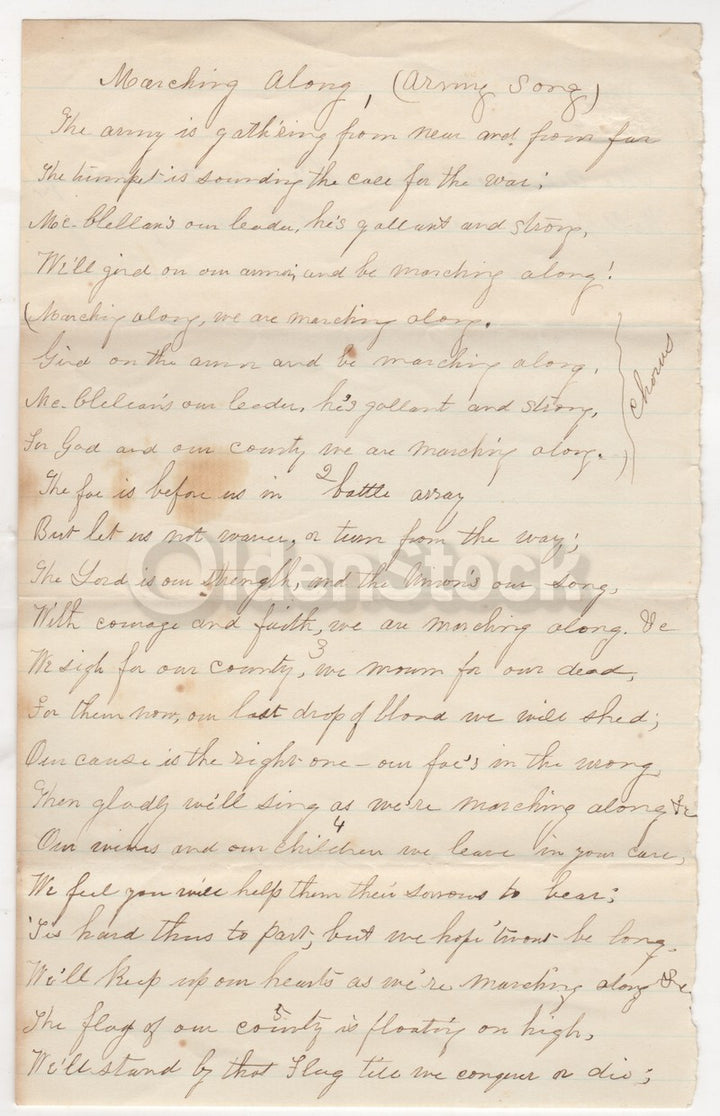 Marching Along, (Army Song)
The army is gath'ring from near and from far
The trumpet is sounding the call for the war;
Mc-Clellan's our leader, he's gallant and strong,
We'll gird on our armor, and be marching along!
(Marching along, we are marching along.
Gird on the armor and be marching along,
Mc-Clellan's our leader, he's gallant and strong,
For God and our county we are marching along.)
Chorus
2
The foe is before us in battle array
But let us not waver, or turn from the way;
The Lord is our strength, and the Union's our song,
With courage and faith, we are marching along. &c
3
We sigh for our county, we mourn for our dead,
For them now, our last drop of blood we will shed;
Our cause is the right one - our foe's in the wrong
Then gladly we'll sing as we're marching along &c
4
Our wives and our children we leave in your care,
We feel you will help them their sorrows to bear;
'Tis hard thus to part, but we hope 'twont be long,
We'll keep up our hearts as we're marching along &c
5
The flag of our county is floating on high,
We'll stand by that Flag till we conquer or die;
OldenStock